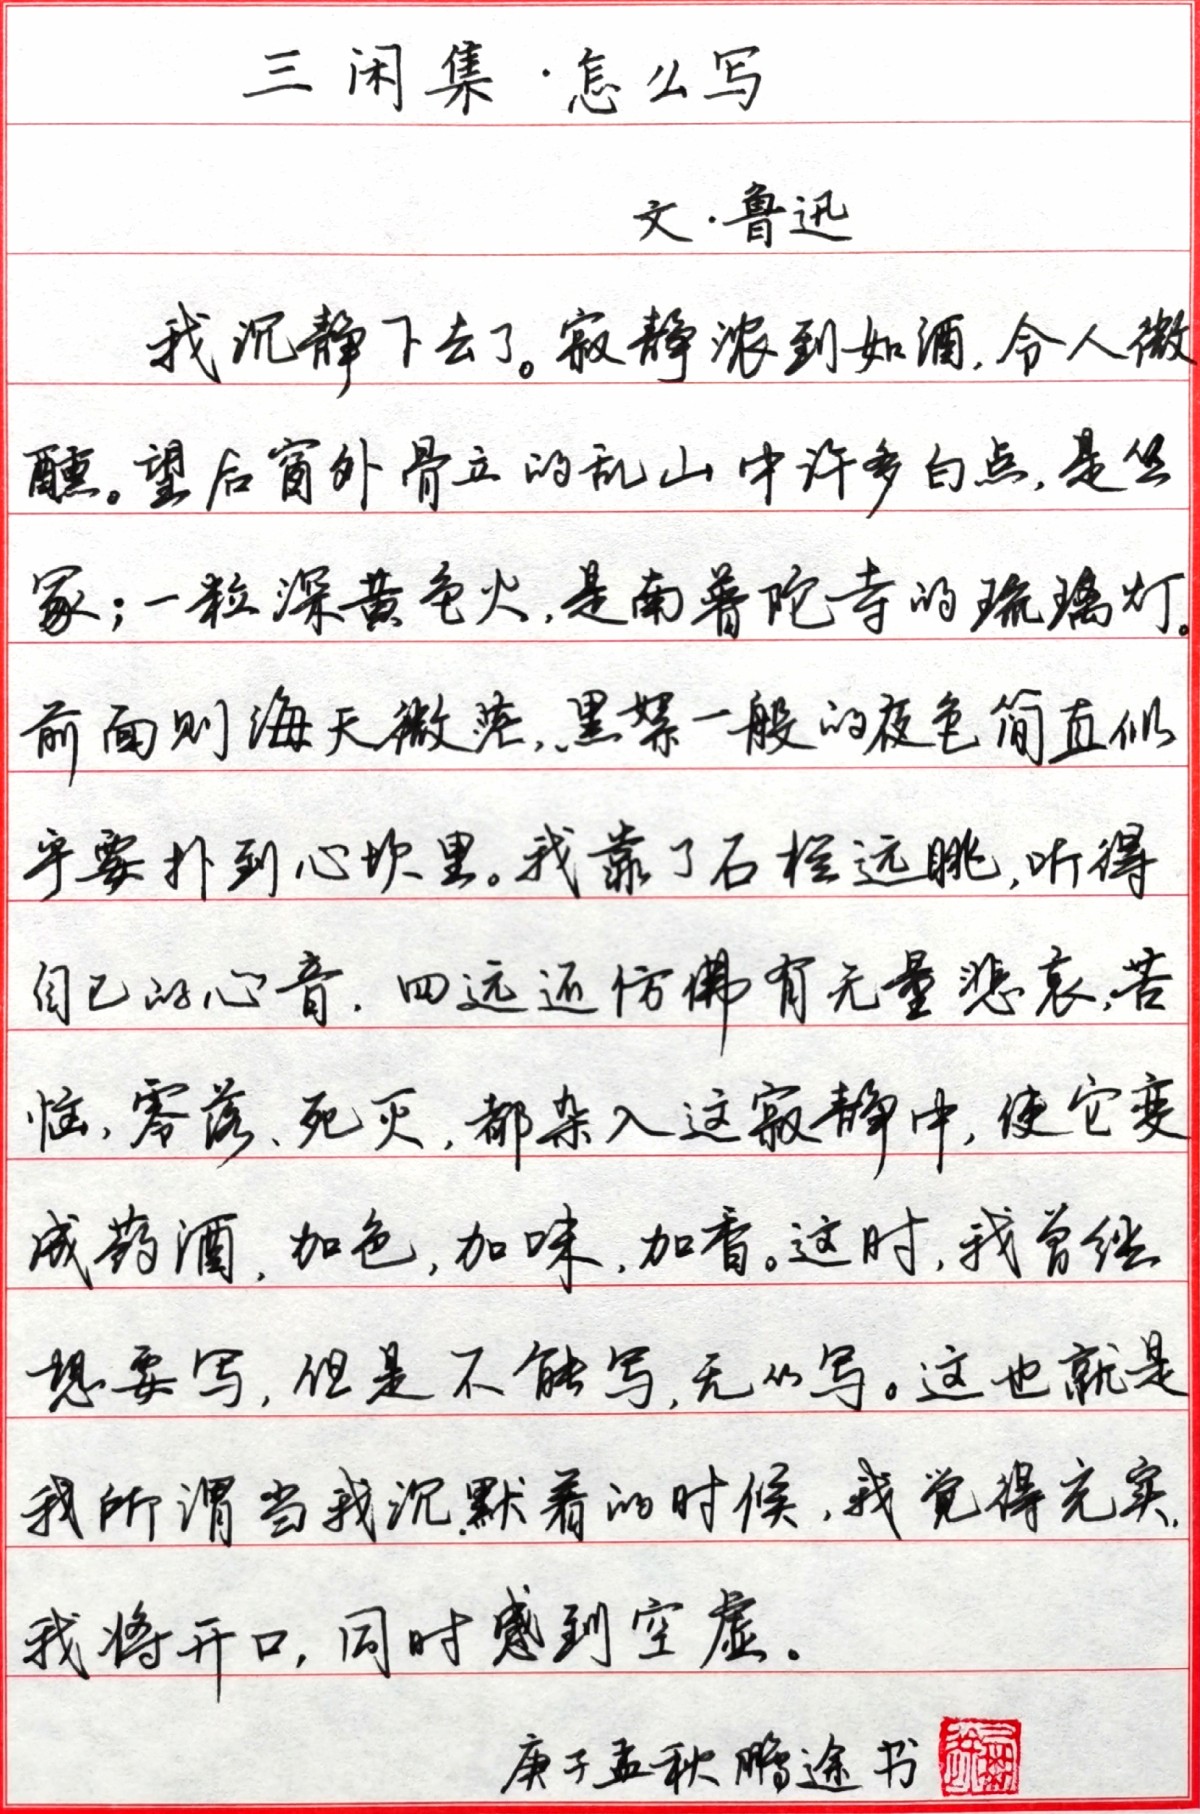 三闲集·怎么写
文·鲁迅
我沉静下去了。寂静浓到如酒,令人微
醺。望后窗外骨立的乱山中许多白点,是丛
冢;一粒深黄色火,是南普陀寺的琉璃灯。
前面则海天微茫,黑絮一般的夜色简直似
乎要扑到心坎里。我靠了石栏远眺,听得
自己的心音,四远还仿佛有无量悲哀,苦
恼,零落、死灭,都杂入这寂静中,使它变
成药酒,加色,加味,加香。这时,我曾经
想要写,但是不能写,无从写。这也就是
我所谓当我沉默着的时候,我觉得充实,
我将开口,同时感到空虚。
庚子孟秋鹏途书